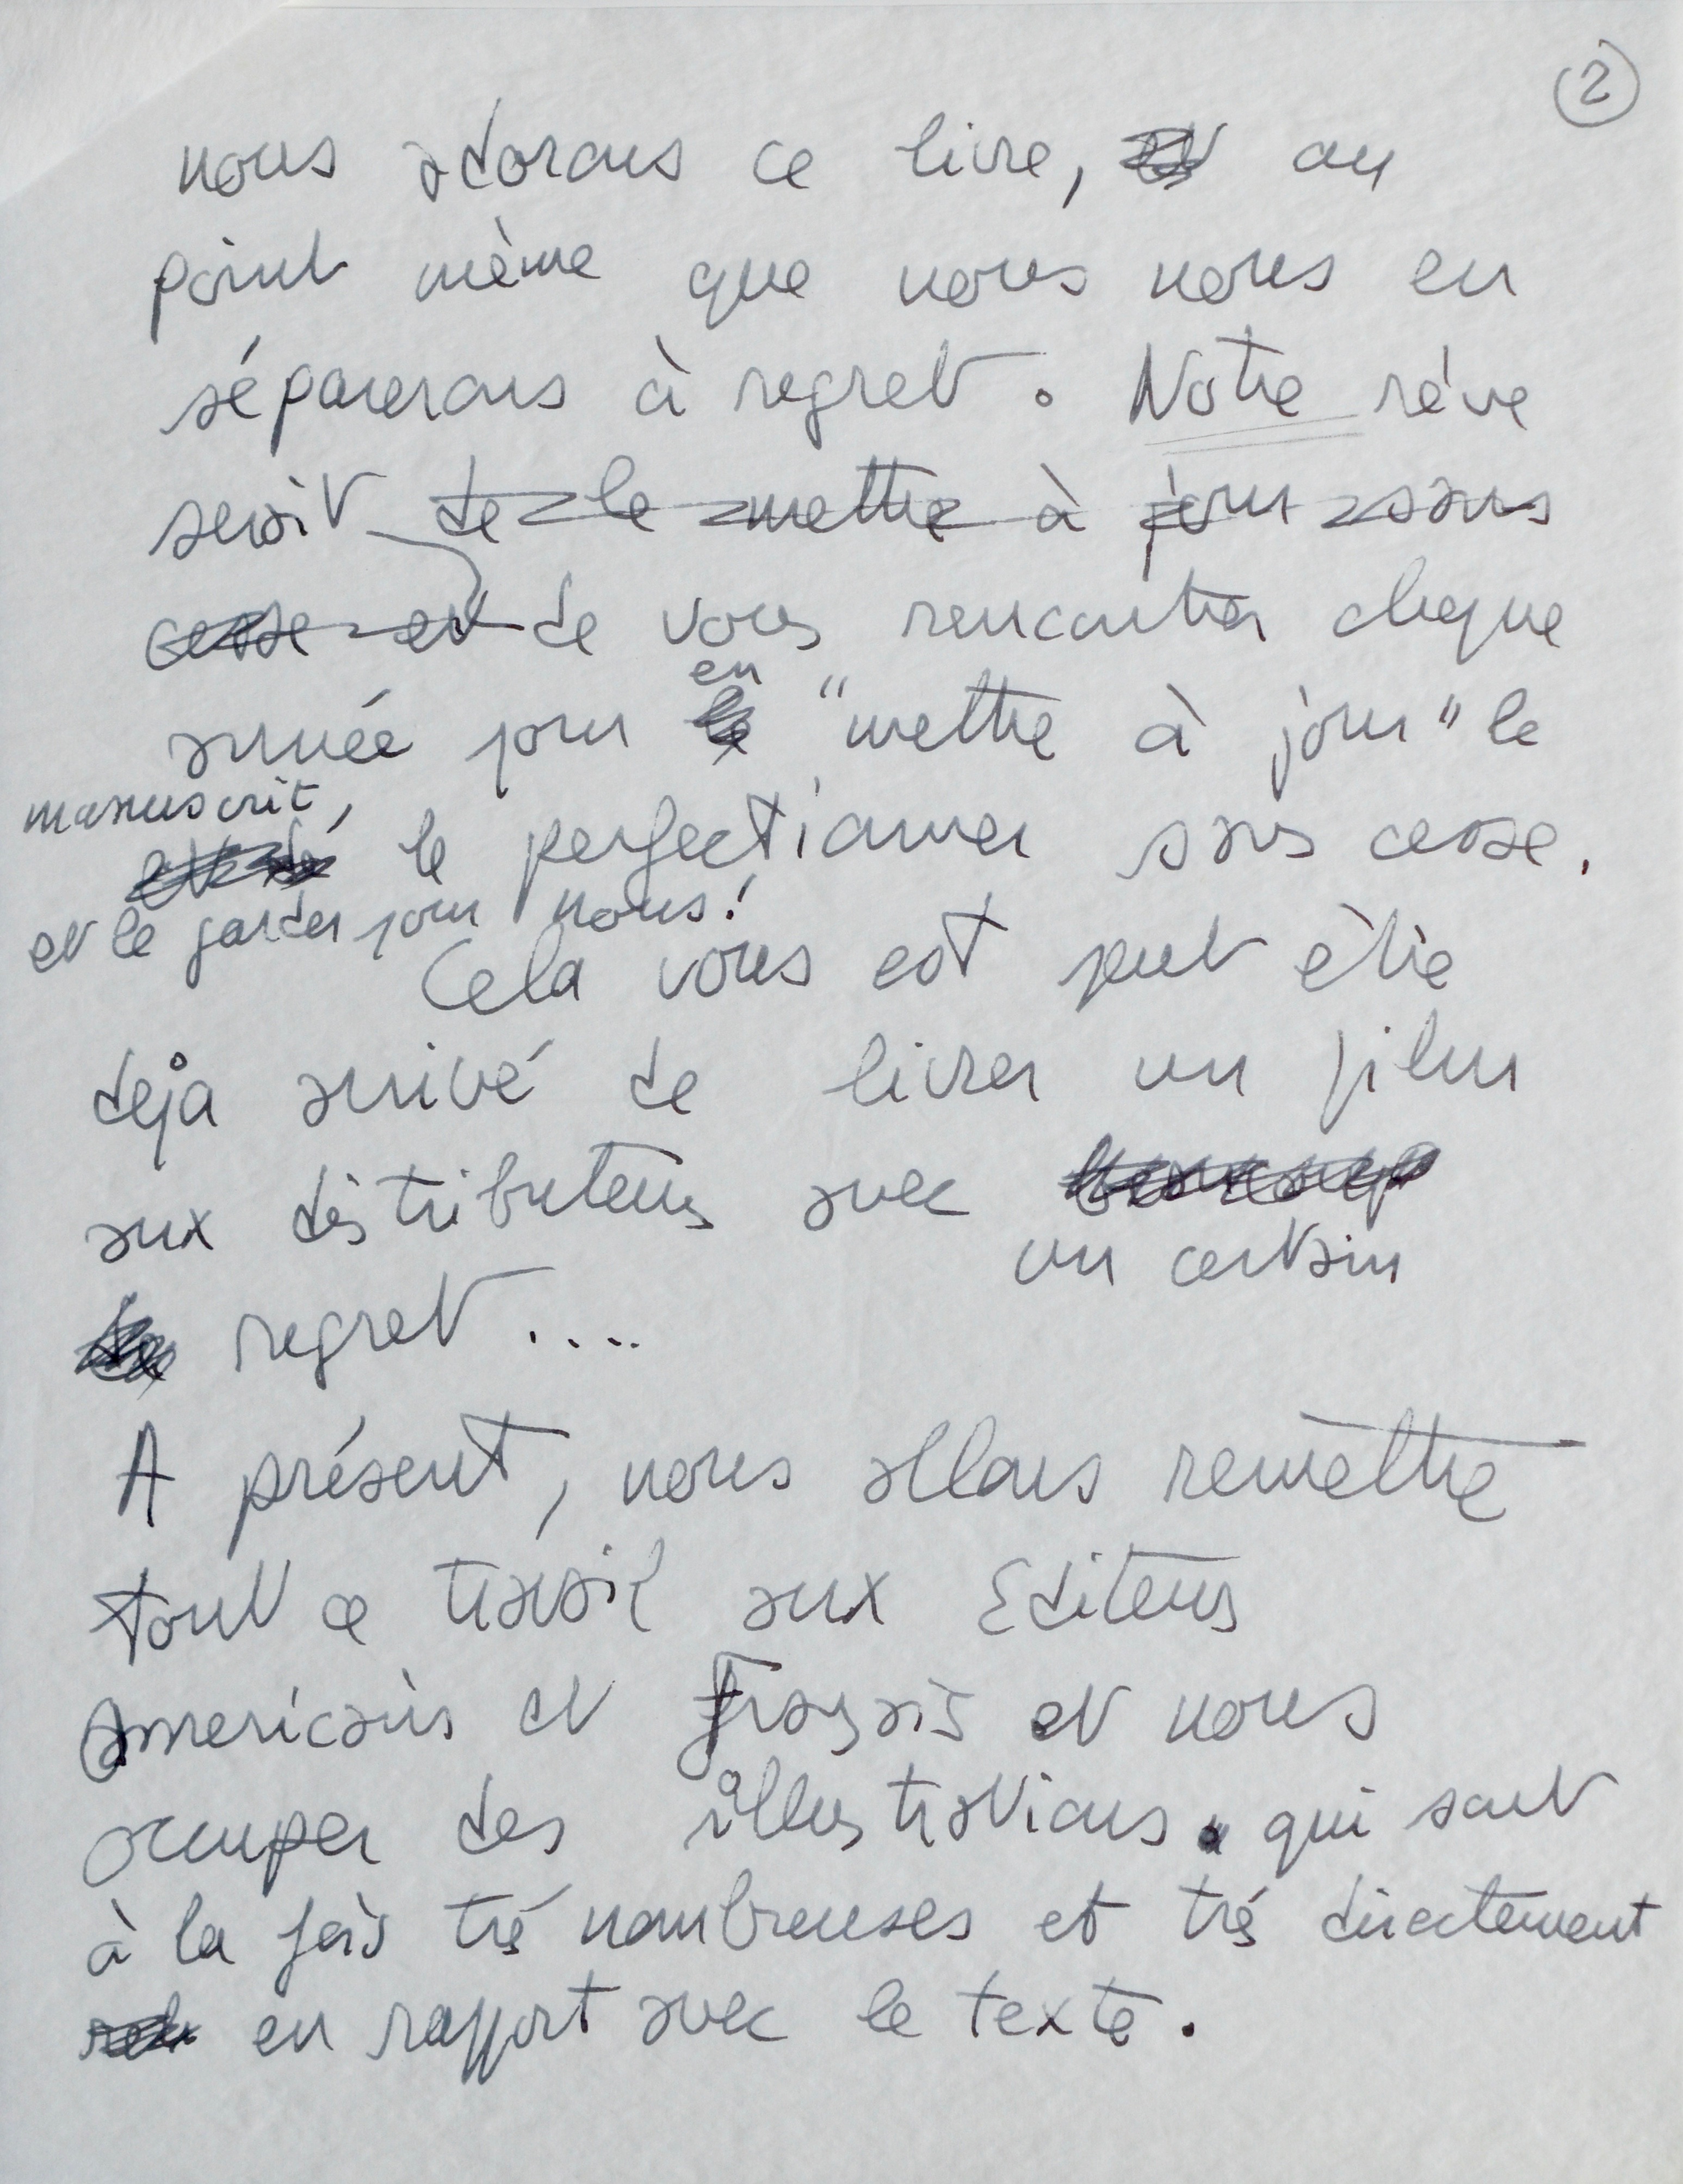 2
nous adorons ce livre, au
point même que nous nous en
séparerons à regret. Notre rêve
serait de le mettre à jour sans
cesse et de vous rencontrer chaque
en
année pour le "mettre à jour" le
manuscrit,
le perfectionner sans cesse.
et le garder pour nous!
Cela vous est peut être
deja arrivé de livrer un film
aux distributeurs avec beaucoup
un certain
de regret....
A présent, nous allons remettre
tout ce travail aux Editeurs
Americains et Français et nous
occuper des illustrations qui sont
à la fois trés nombreuses et trés directement
en rapport avec le texte.